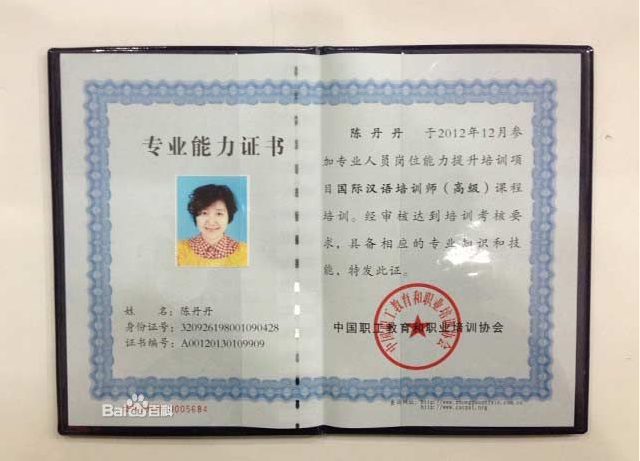 专业能力证书
姓 名：陈丹丹
身份证号：320926198001090428
证书编号：A00120130109909
陈丹丹 于2012年12月参
加专业人员岗位能力提升培训项
目国际汉语培训师（高级）课程
培训。经审核达到培训考核要
求，具备相应的专业知识和技
能，特发此证。
中国职工教育和职业培训协会
中国职工教育和职业培训协会
Baidu百科
005684
查询网址：